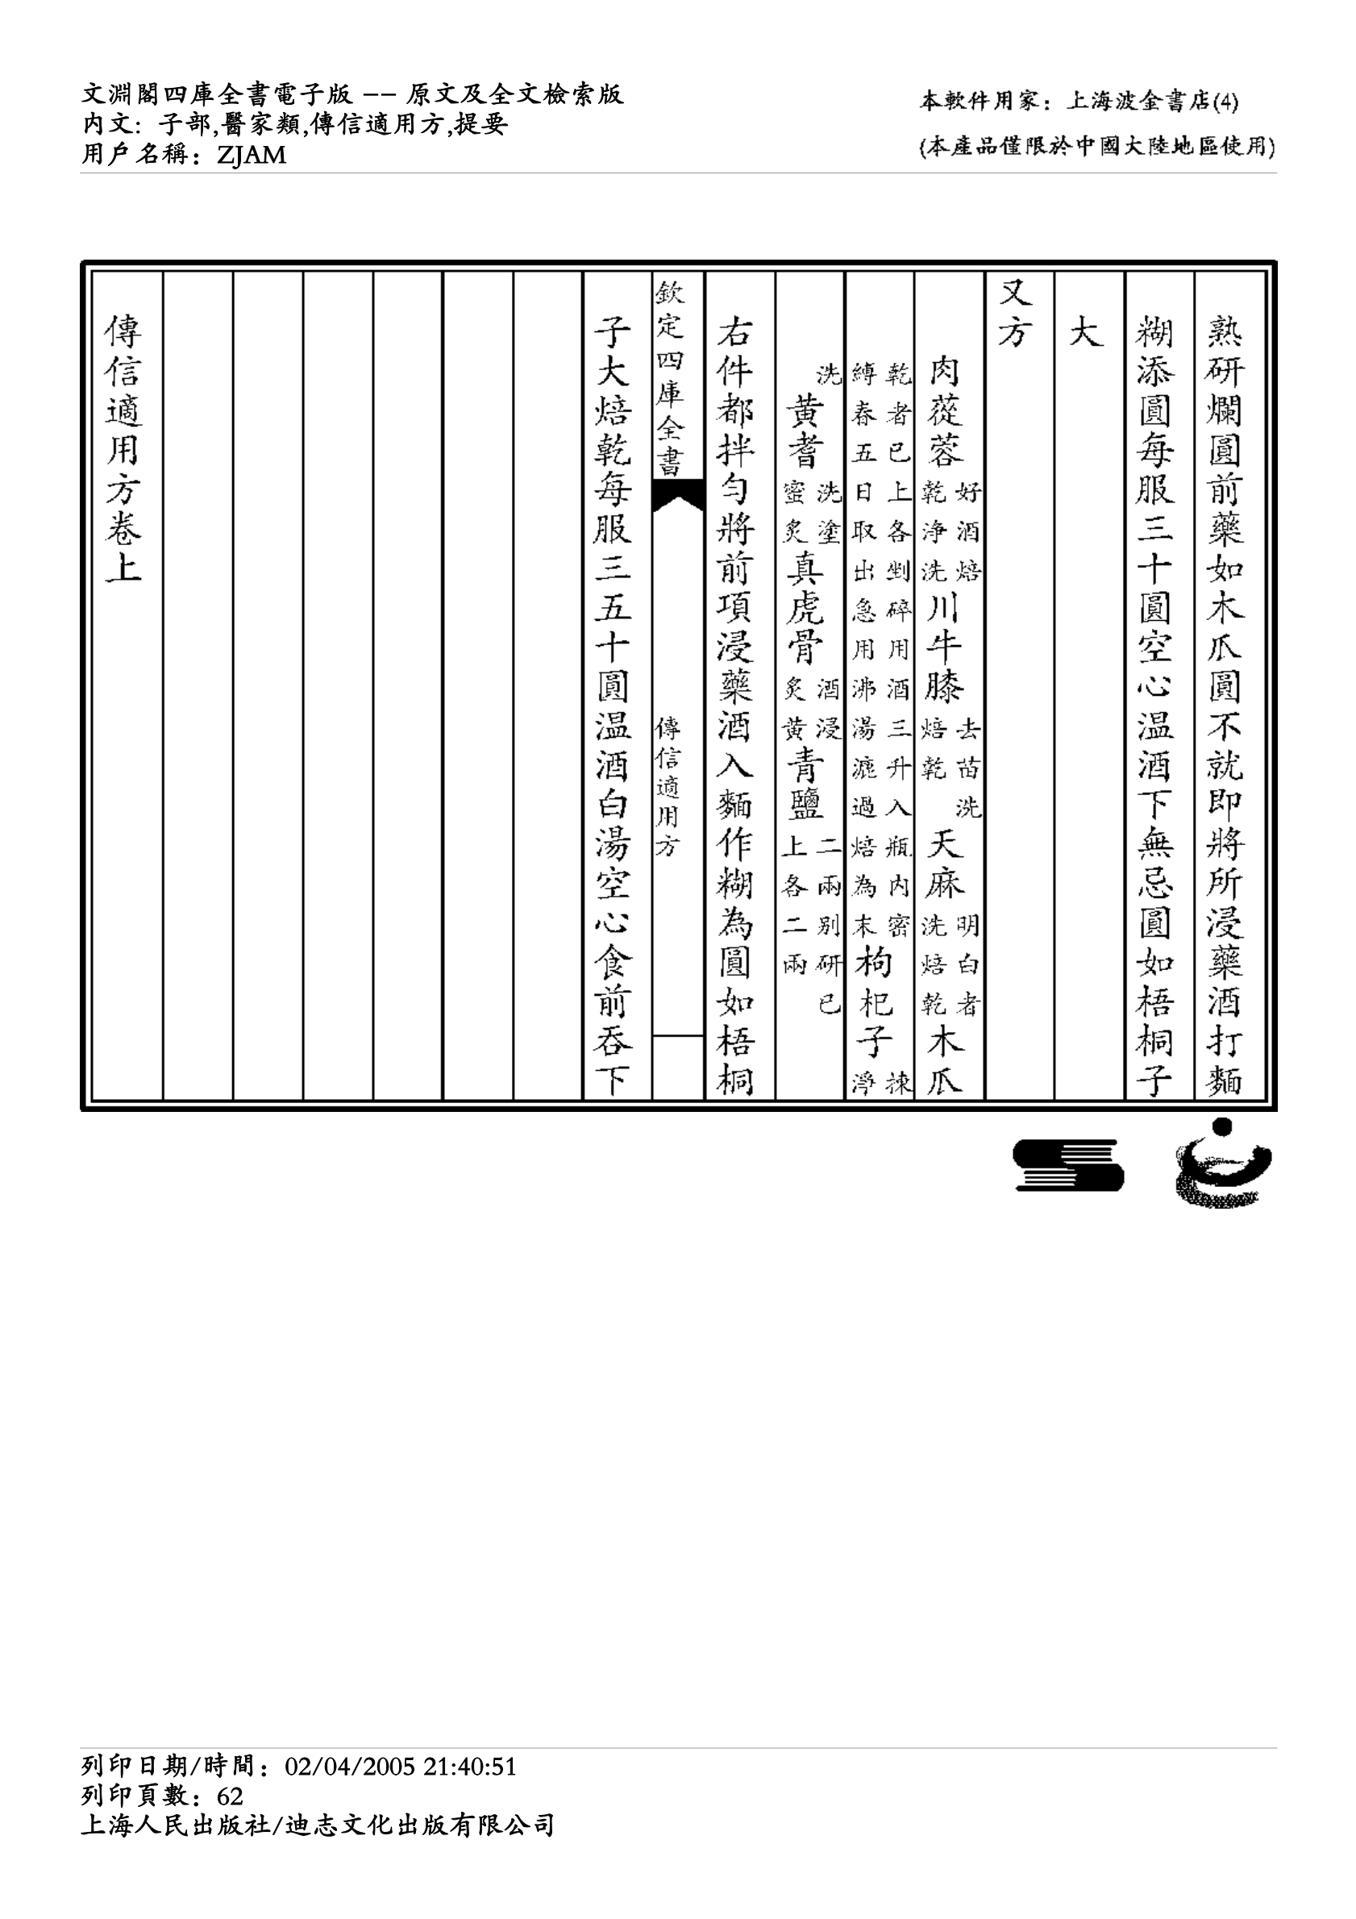 文淵閣四庫全書電子版 -- 原文及全文檢索版
內文: 子部,醫家類,傳信適用方,提要
用戶名稱: ZJAM
本軟件用家: 上海波全書店(4)
(本產品僅限於中國大陸地區使用)
熟研爛圓前藥如木瓜圓不就即將所浸藥酒打麵
糊添圓每服三十圓空心温酒下無忌圓如梧桐子
大
又方
肉蓯蓉好酒焙乾浄洗川牛膝去苗洗焙乾天麻明白者洗焙乾木瓜
乾者已上各剉碎用酒三升入瓶内密縛春五日取出急用沸湯漉過焙為末枸杞子揀淨
洗黄耆洗塗蜜炙真虎骨酒浸炙黄青鹽二兩别研已上各二兩
右件都拌勻將前項浸藥酒入麵作糊為圓如梧桐
欽定四庫全書
傳信適用方
子大焙乾每服三五十圓温酒白湯空心食前吞下
傳信適用方卷上
列印日期/時間: 02/04/2005 21:40:51
列印頁數: 62
上海人民出版社/迪志文化出版有限公司